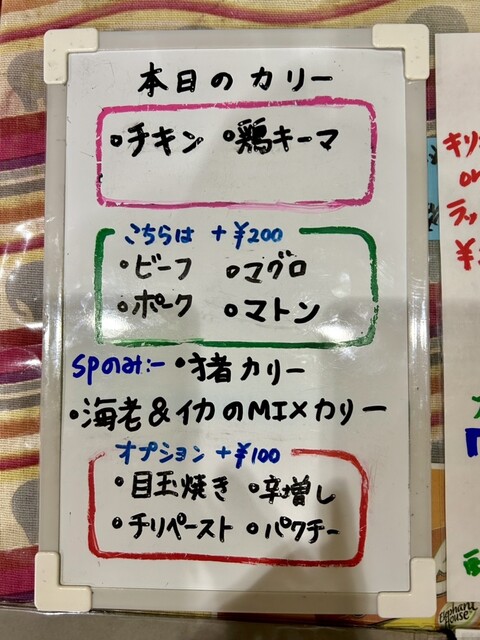 本日のカリー
・チキン ・鶏キーマ
こちらは +¥200
・ビーフ ・マグロ
・ポーク ・マトン
SPのみ:- ・猪カリー
・海老&イカのMIXカリー
オプション +¥100
・目玉焼き ・辛増し
・チリペースト ・パクチー
キリ
or
ラッ
¥
Elephant
House